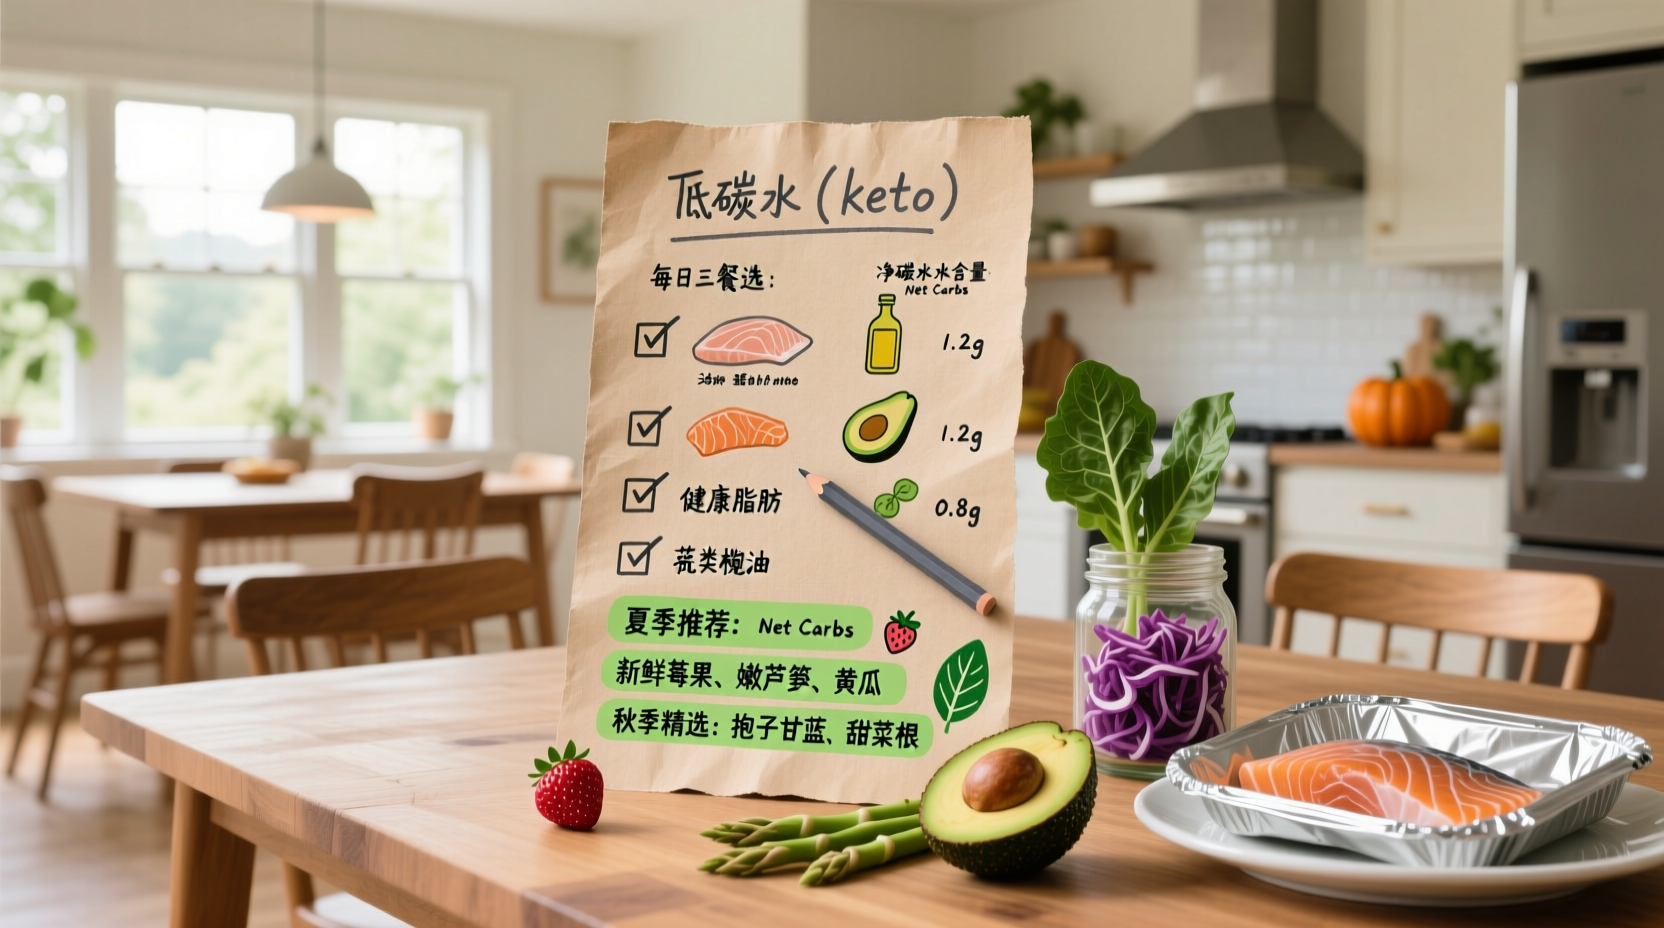 低碳水(keto)
每日三餐选:
净碳水水含量
Net Carbs
1.2g
1.2g
健康脂肪
0.8g
夏季推荐: Net Carbs
新鲜莓果、嫩芦笋、黄瓜
秋季精选: 抱子甘蓝、甜菜根